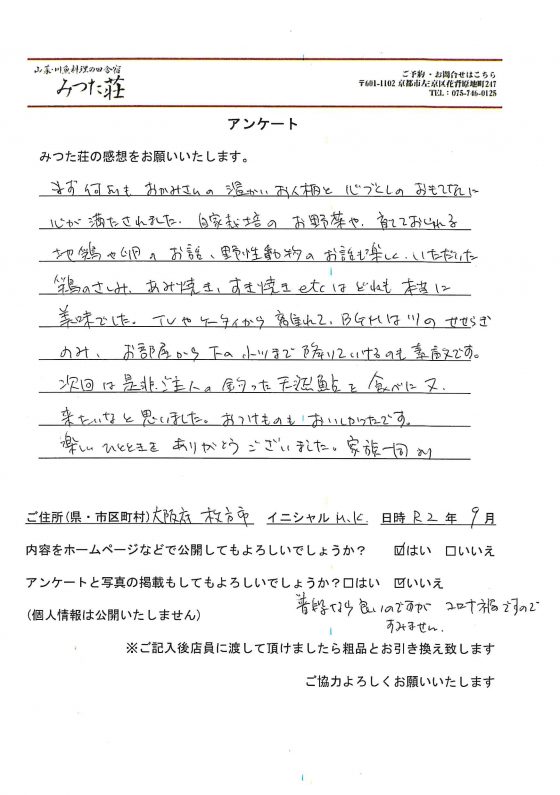 山菜・川魚料理の田舎宿
みつた荘
ご予約・お問合せはこちら
〒601-1102 京都市左京区花背原地町247
TEL：075-746-0125
アンケート
みつた荘の感想をお願いいたします。
まず何よりも おかみさんの 温かいお人柄と 心づくしの おもてなしに
心が満たされました。自家栽培の お野菜や、育てておられる
地鶏や卵の お話、野性動物の お話も楽しく、いただいた
鶏のさしみ、あみ焼き、すき焼き etc は どれも 本当に
美味でした。TVやケータイから 離れて、BGMは川の せせらぎ
のみ、お部屋から 下の 小川まで 降りていけるのも 素敵です。
次回は 是非ご主人の 釣った 天然鮎を 食べに 又、
来たいなと 思いました。おつけものも おいしかったです。
楽しい ひとときを ありがとう ございました。家族一同より
ご住所(県・市区町村) 大阪府 枚方市 イニシャル M.K. 日時 R2 年 9 月
内容をホームページなどで公開してもよろしいでしょうか？ ☑はい □いいえ
アンケートと写真の掲載もしてもよろしいでしょうか？□はい ☑いいえ
(個人情報は公開いたしません)
普段なら 良いのですが コロナ禍ですので
すみません。
※ご記入後店員に渡して頂けましたら粗品とお引き換え致します
ご協力よろしくお願いいたします